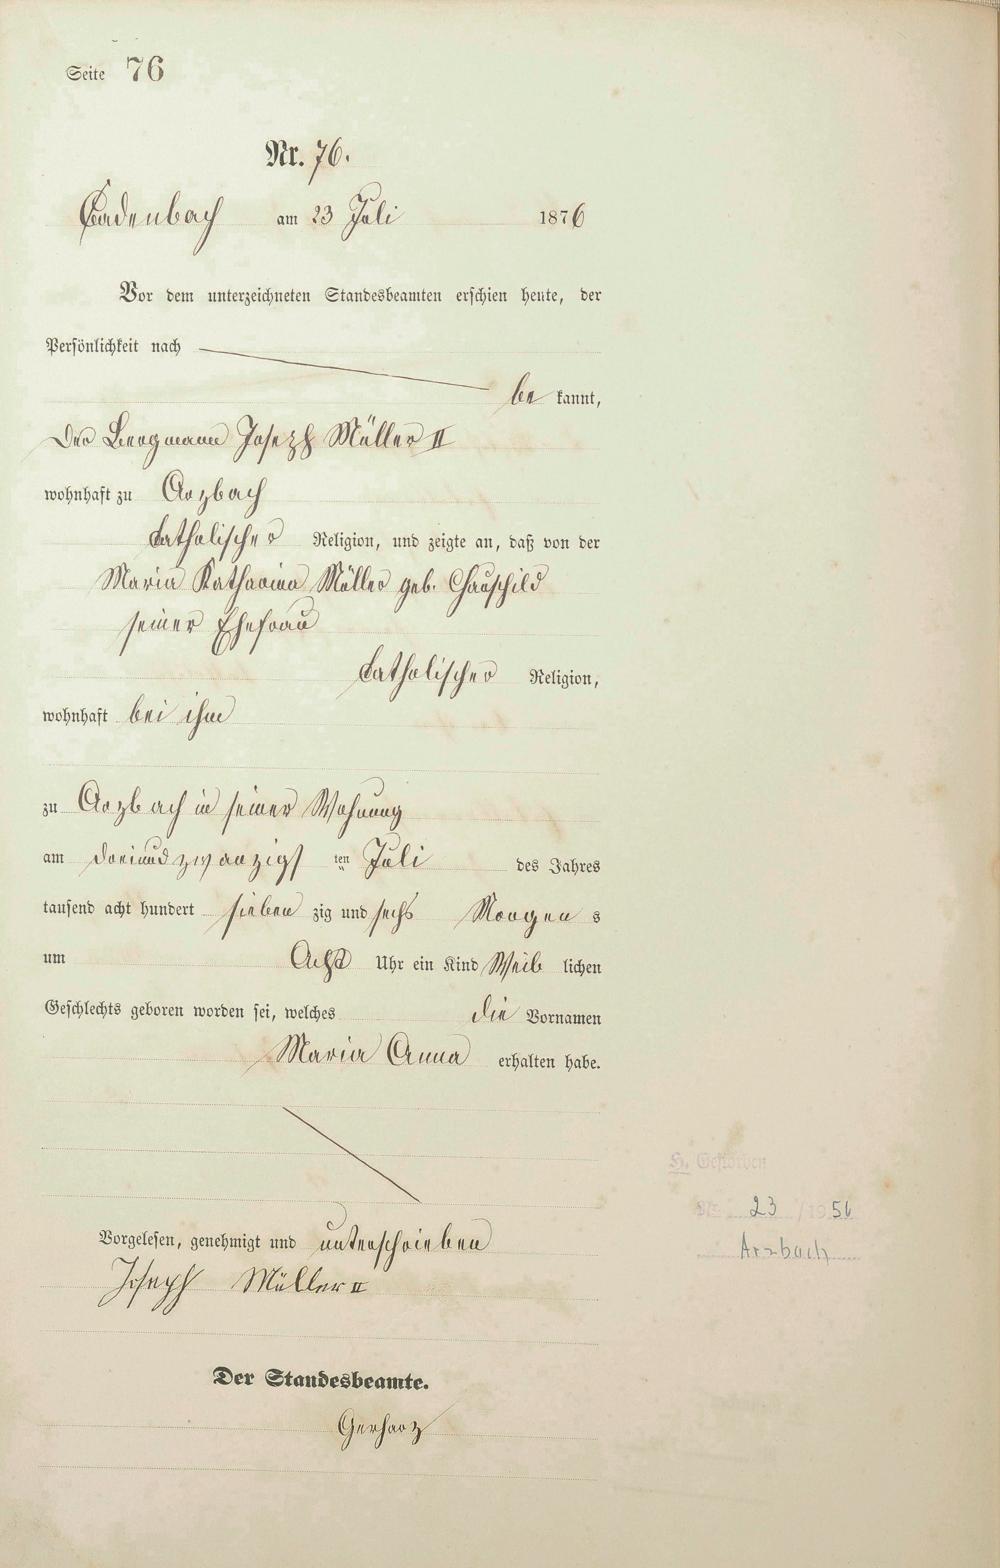 Seite 76
Nr. 76.
Cadenbach am 23 Juli 1876
Vor dem unterzeichneten Standesbeamten erschien heute, der
Persönlichkeit nach
be kannt,
der Bergmann Joseph Müller II
wohnhaft zu Arzbach
katholischer Religion, und zeigte an, daß von der
Maria Katharina Müller geb.
seiner Ehefrau
katholischer Religion,
wohnhaft bei ihm
zu Arzbach in seiner Wohnung
am dreiundzwanzigsten Juli des Jahres
tausend acht hundert sieben zig und sechs Morgens
um Acht Uhr ein Kind Weib lichen
Geschlechts geboren worden sei, welches die Vornamen
Maria Anna erhalten habe.
H. Gestorben
Nr. 23 / 1956
Arzbach
Vorgelesen, genehmigt und unterschrieben
Joseph Müller II
Der Standesbeamte.
Gerharz